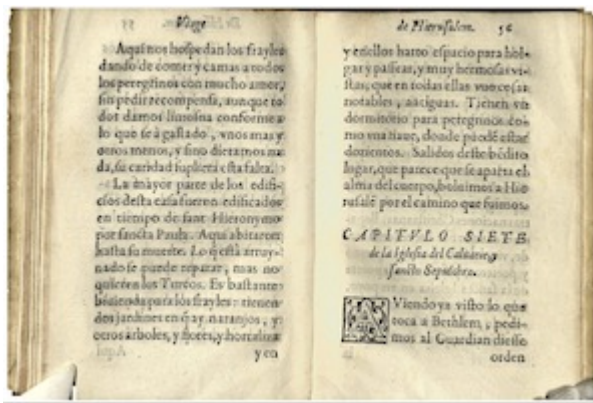 Viage
Aqui nos hospedan los frayles
dando de comer y camas a todos
los peregrinos con mucho amor,
sin pedir recompensa, aunque to
dos damos limosna conforme a
lo que se a gastado, vnos mas y
otros menos, y si no dieramos na
da, su caridad supliera esta falta.
La mayor parte de los edifi-
cios desta casa fueron edificados
en tiempo de sant Hieronymo
por sancta Paula. Aqui abitaron
hasta su muerte. Lo q̃ està arruy-
nado se puede reparar, mas no
quieren los Turcos. Es bastante
para los frayles: tienen
dos jardines en q̃ ay naranjos, y
otros arboles, y flores, y hortaliza
y en
de Hierusalem. 56
y en ellos harto espacio para hol-
gar y passear, y muy hermosas vi-
stas, que en todas ellas vuo cosas
notables, antiguas. Tienen vn
dormitorio para peregrinos co-
mo vna naue, donde puedẽ estar
dozientos. Salidos deste bẽdito
lugar, que parece que se aparta el
alma del cuerpo, boluimos a Hie
rusalẽ por el camino que fuimos.
CAPITVLO SIETE
de la Iglesia del Caluario, y
sancto Sepulchro.
AViendo ya visto lo que
toca a Bethlem, pedi-
mos al Guardian diesse
orden